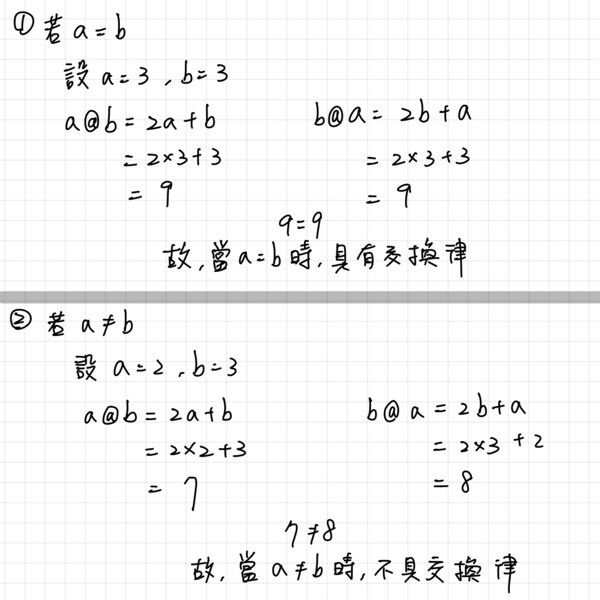 ① 若 a = b
設 a = 3 , b = 3
a@b = 2a + b
= 2×3 + 3
= 9
b@a = 2b + a
= 2×3 + 3
= 9
9 = 9
故, 當 a = b 時, 具有交換律
② 若 a ≠ b
設 a = 2 , b = 3
a@b = 2a + b
= 2×2 + 3
= 7
b@a = 2b + a
= 2×3 + 2
= 8
7 ≠ 8
故, 當 a ≠ b 時, 不具交換律